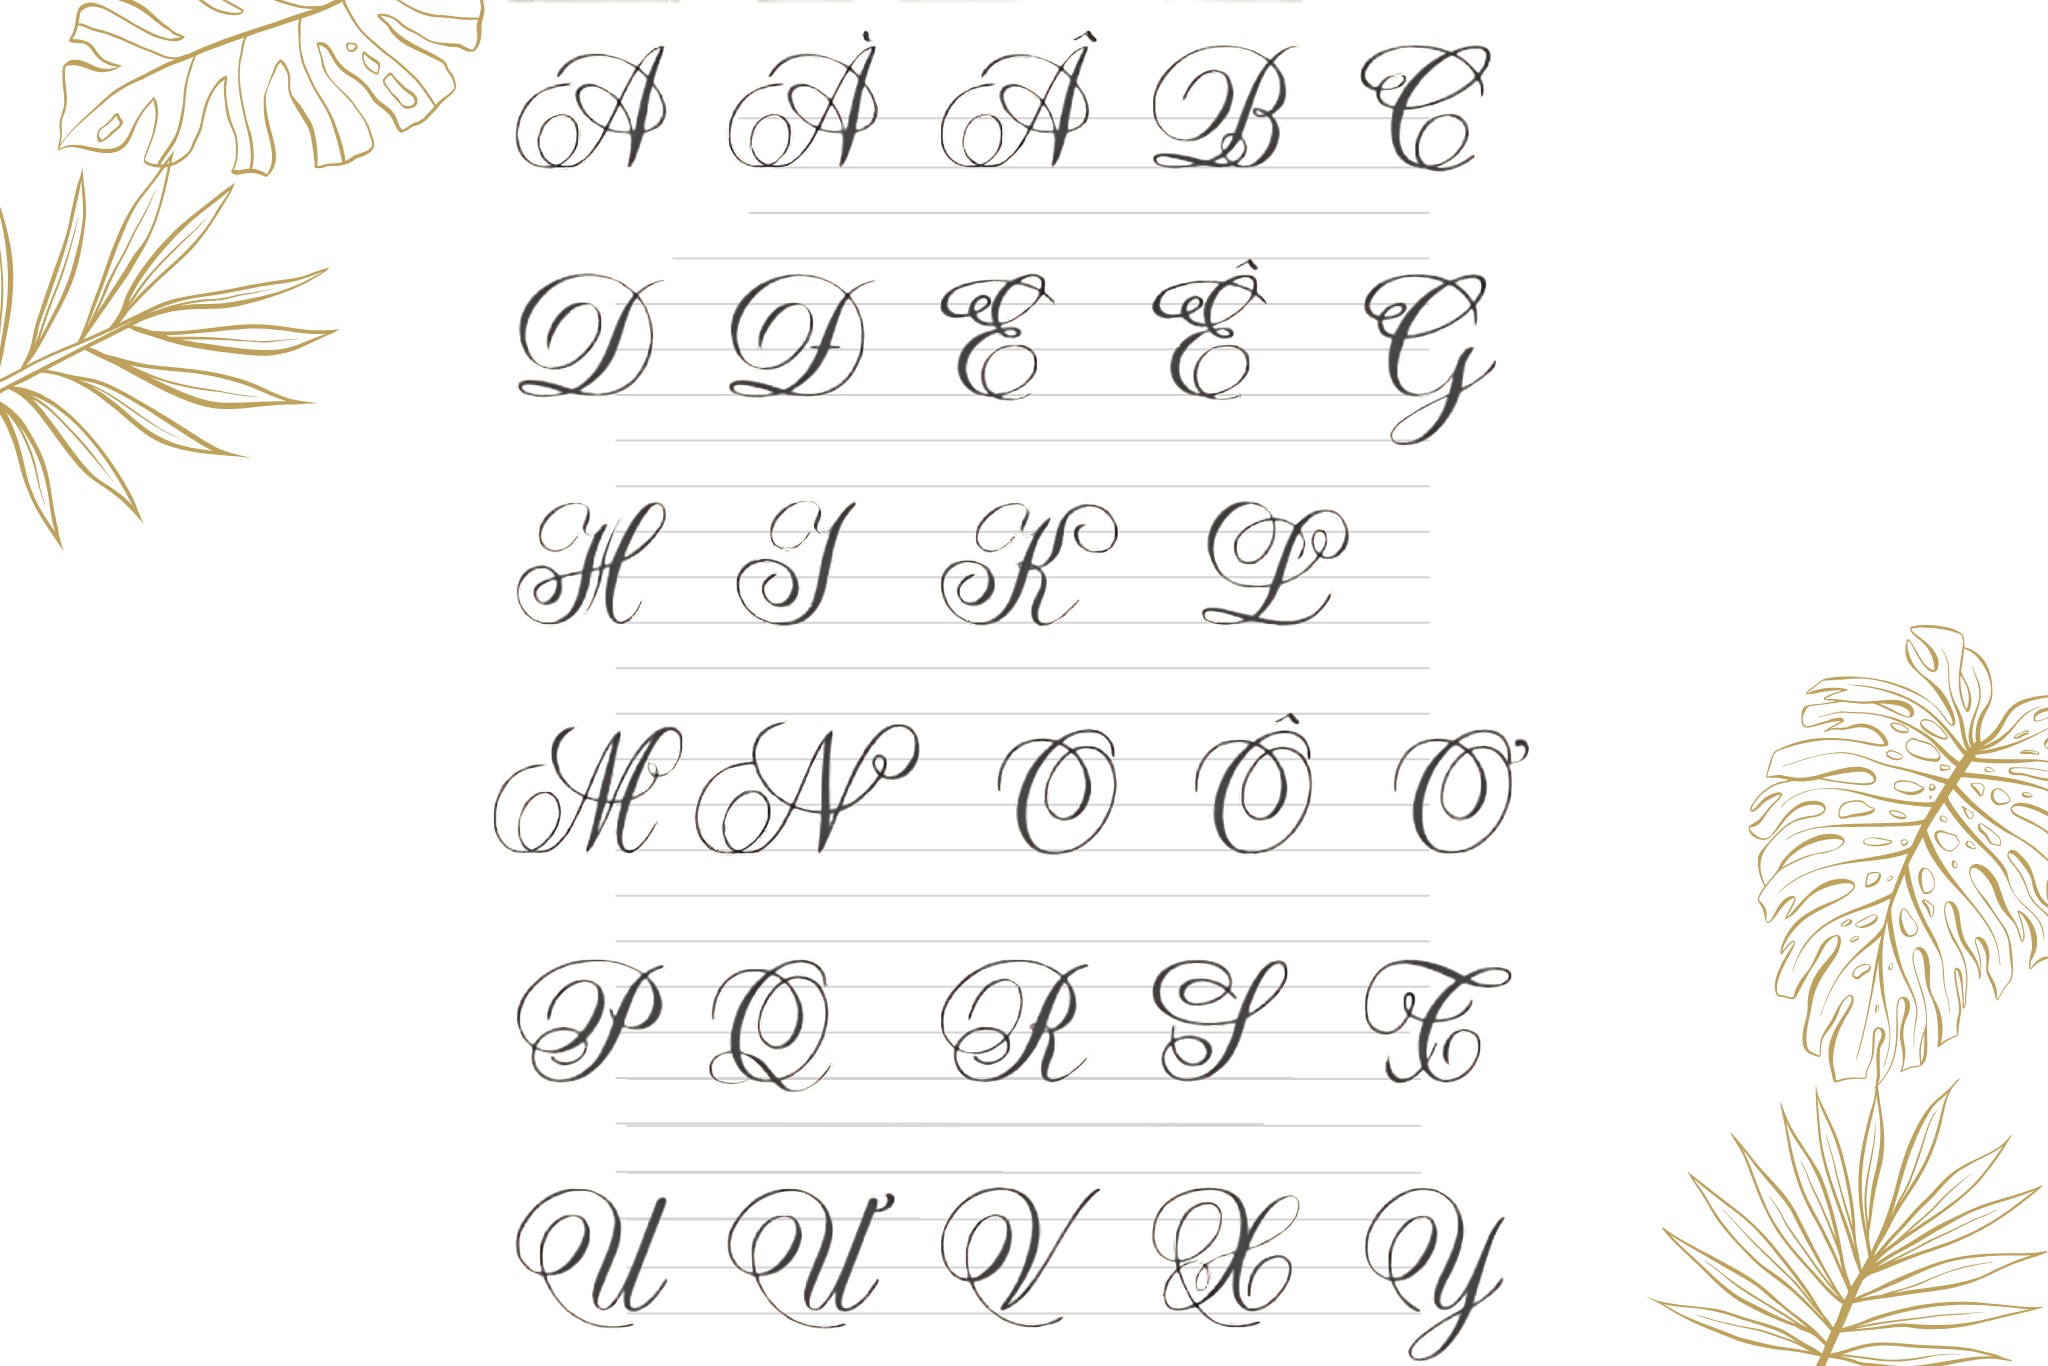 A À Â B C
D Đ E Ê G
H I K L
M N O Ô Ơ
P Q R S T
U Ư V X Y